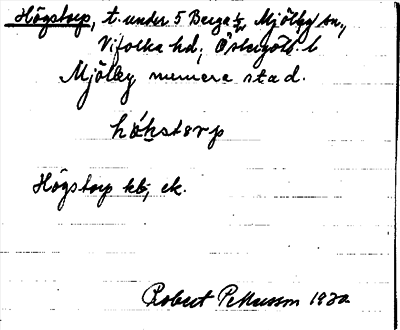 Högstorp, t. under 5 Berga ½, Mjölby sn.,
Vifolka hd, Östergötl. l
Mjölby numera stad.
hö́kstorp
Högstorp kb, ek.
Robert Pettersson 19